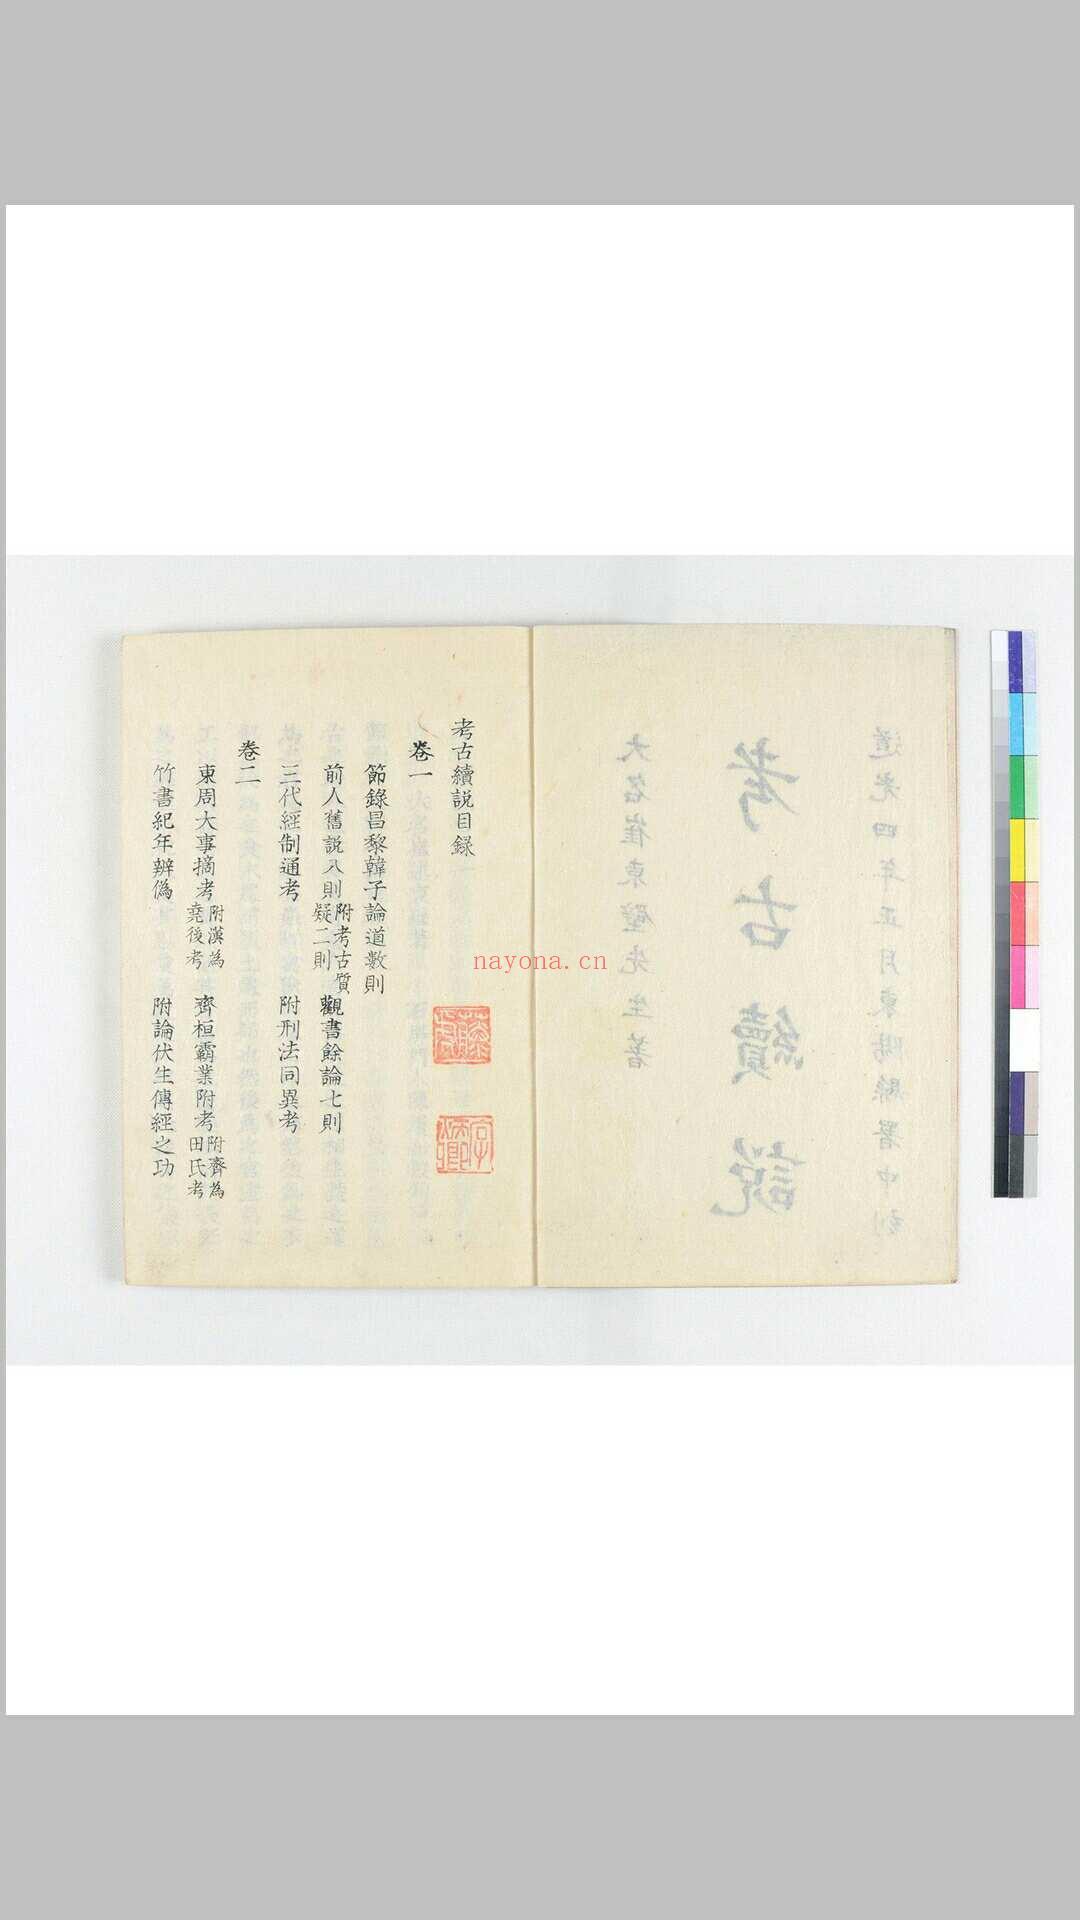 道光四年正月東陽縣署中刻
考古續説
大名崔東壁先生著
考古續説目録
卷一
節錄昌黎韓子論道數則
前人舊説八則 附考古質疑二則 觀書餘論七則
三代經制通考 附刑法同異考
卷二
東周大事摘考 附漢為堯後考 齊桓霸業附考 附齊為田氏考
竹書紀年辨偽 附論伏生傳經之功
nayona.cn